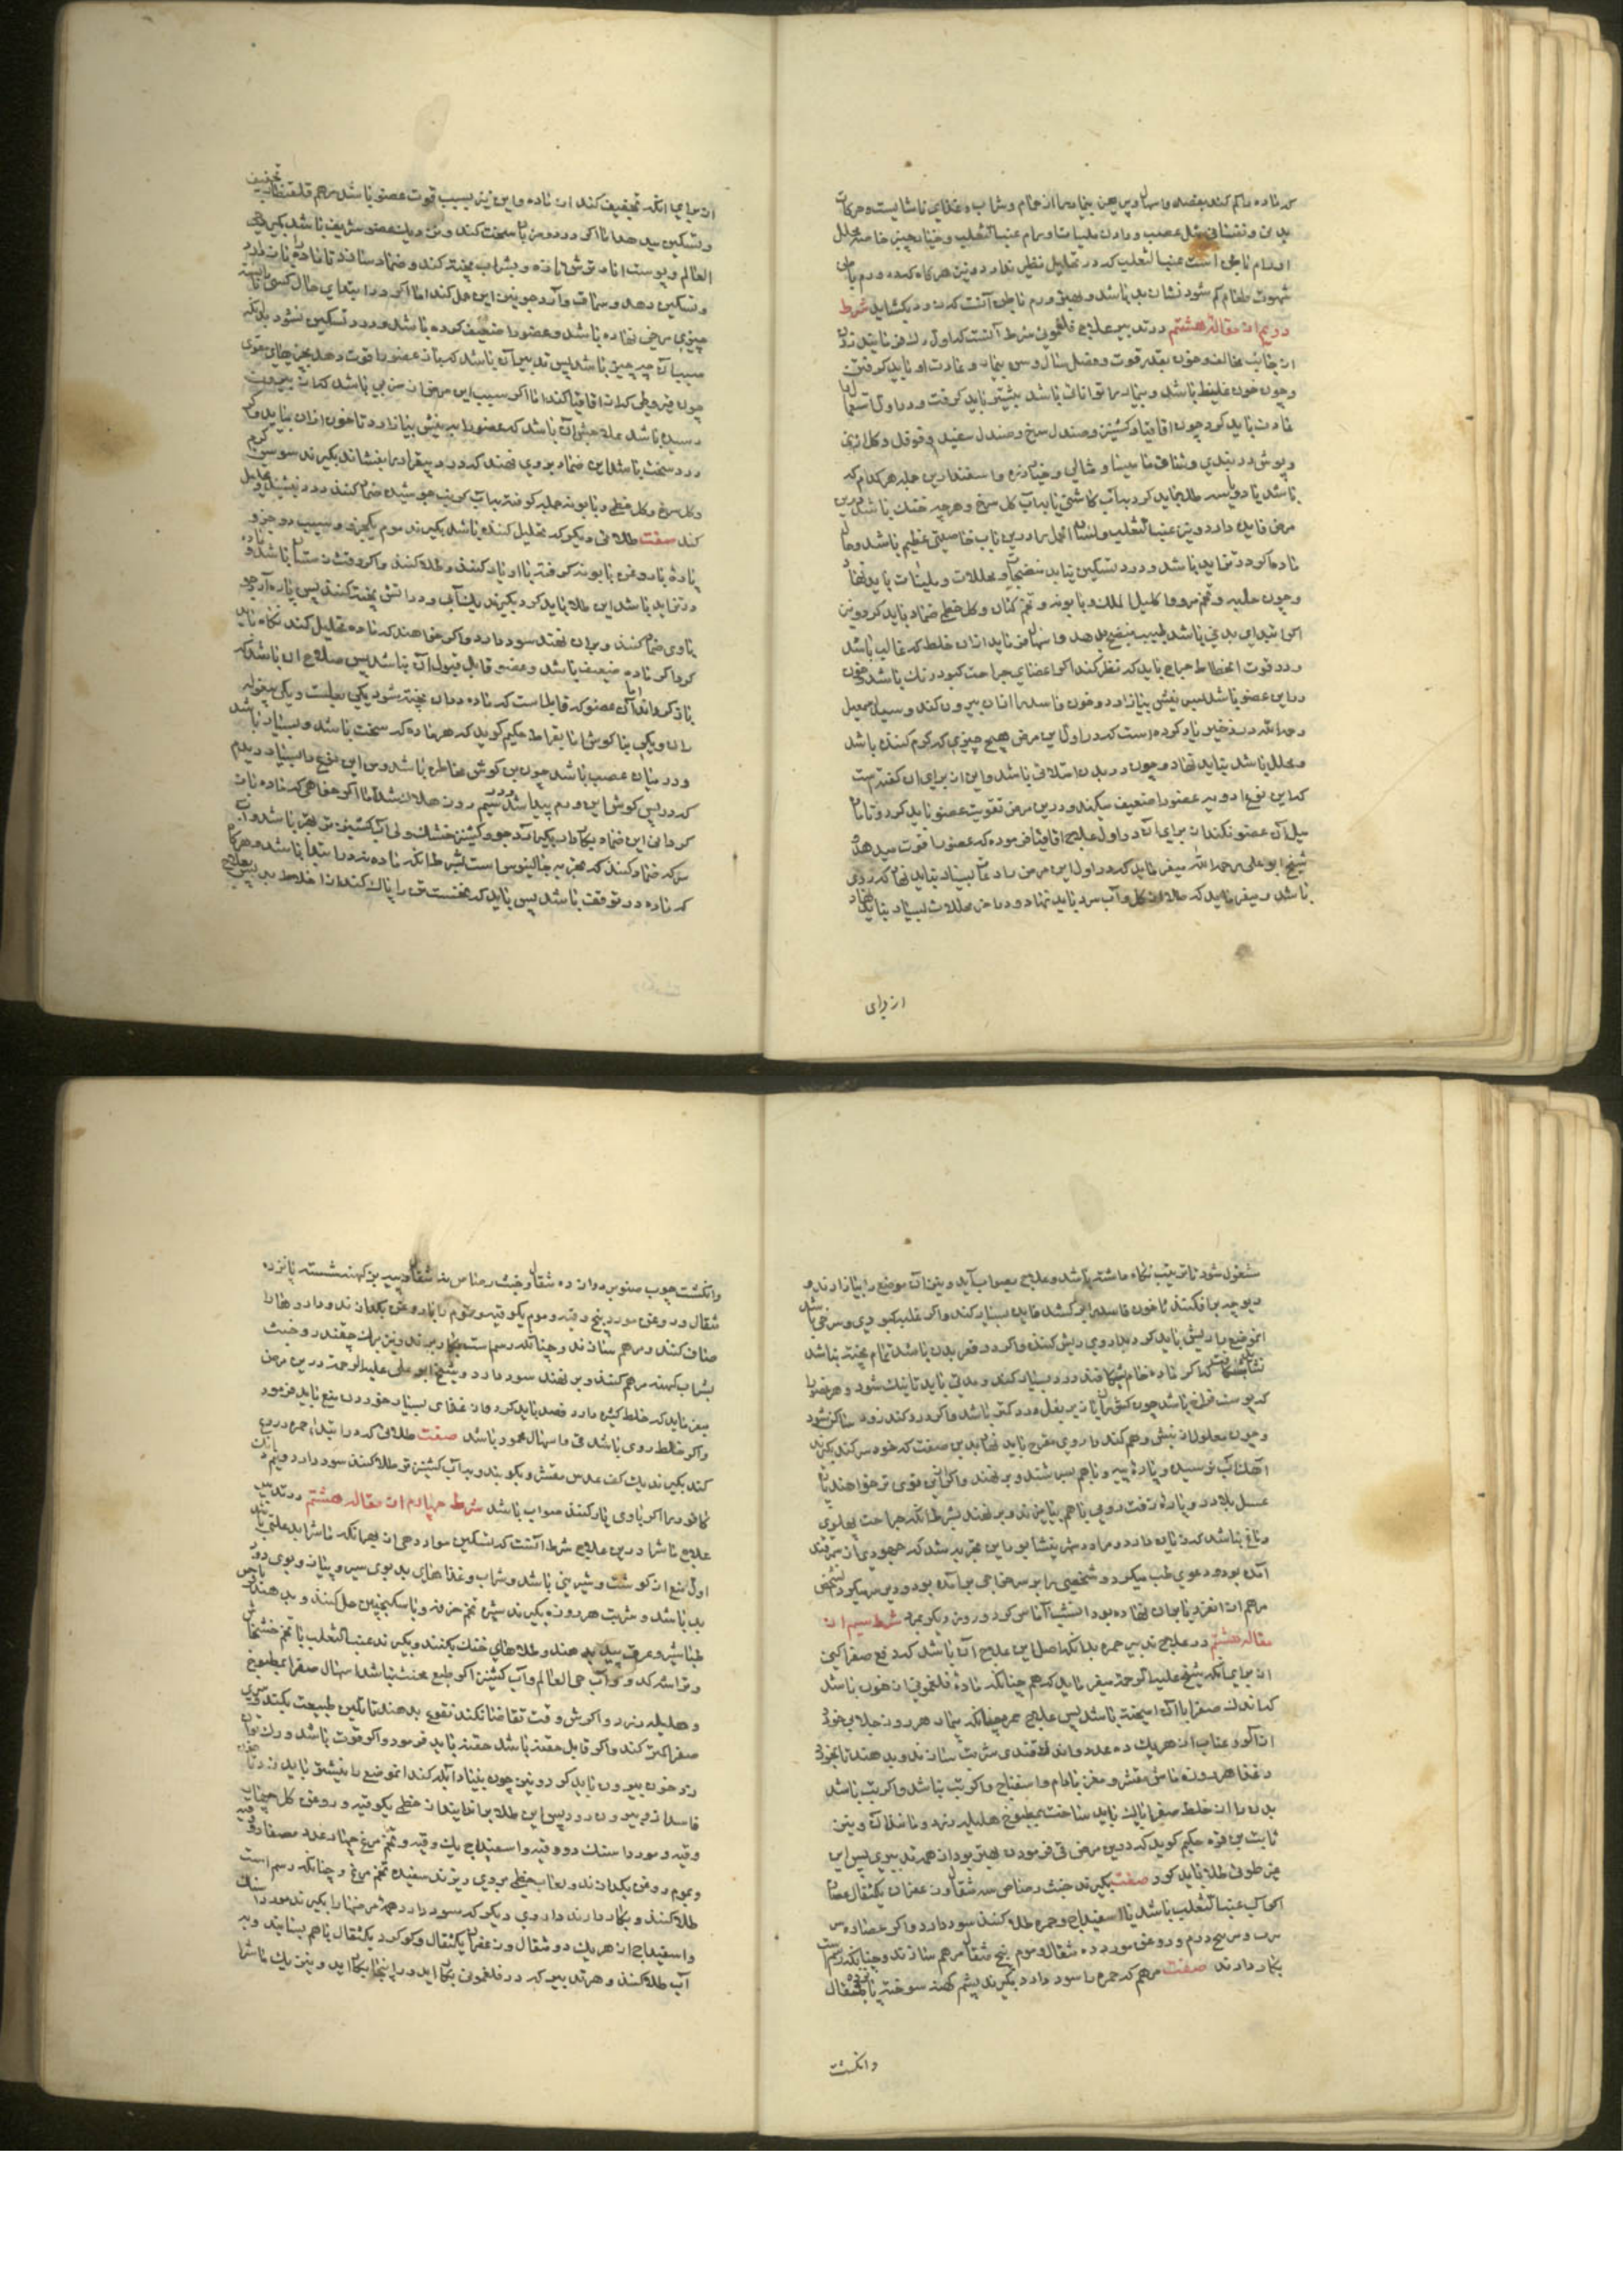 که ماده را کم کند بفصد و اسهال پس چون بیمار را از حمام و شراب و غذای ناشایسته و حرکات
بدن و نفسانی مثل غضب و دادن ملینات اورام عنب الثعلب و خیار چنبر خاصه محلل
اورام باطنی است عنب الثعلب که در تحلیل نظیر ندارد و نیز هرگاه که ورم باطن
شهوت طعام کم شود نشان بد باشد و بهترین ورم باطن آنست که زود بگشاید شرط
دویم از مقاله هشتم در تدبیر علاج فلغمونی شرط آنست که اول رگ فرمایند زدن
از جانب مخالف و خون بقدر قوت و فصل سال و سن بیمار و عادت او باید گرفتن
و چون خون غلیظ باشد و بیمار را توانائی باشد بیشتر باید گرفت و در اول استعمال
رادعات باید کرد چون اقاقیا و کشنیز و صندل سرخ و صندل سفید و فوفل و گل ارمنی
باشد یا دو یا سه طلا باید کرد بآب کاسنی یا بآب گل سرخ و هرچه خنک باشد درین
مرض فایده دارد و نیز عنب الثعلب و لسان الحمل را درین باب خاصیتی عظیم باشد و حال
ماده اگر در تزاید باشد و درد تسکین نیابد منضجات و محللات و ملینات باید نهاد
و چون حلبه و تخم مرو و اکلیل الملک و بابونه و تخم کتان و گل خطمی ضماد باید کرد و نیز
اگر امتلای بدنی باشد طبیب منضج بدهد و اسهال فرماید از آن خلط که غالب باشد
و در وقت انحطاط جراح باید که نظر کند اگر اعضای جراحت کبود رنگ باشد و خون
در این عضو باشد پس بنیش بیازارد و خون فاسد را از آن بیرون کند و سید اسمعیل
رحمه الله در ذخیره یاد کرده است که در اول این مرض هیچ چیزی که گرم کننده باشد
و محلل باشد نباید نهاد و چون در بدن امتلائی باشد و این از برای آن گفته است
که این نوع ادویه عضو را ضعیف میکند و درین مرض تقویت عضو باید کرد و تا ماده
میل آن عضو نکند از برای آن در اول علاج اقاقیا فرموده که عضو را قوت میدهد
شیخ ابو علی رحمه الله میفرماید که در اول این مرض رادعات بسیار نباید نهاد که ردی
باشد و میفرماید که طلا از گل و آب سرد باید نهاد و در آخر محللات بسیار نباید نهاد
از برای
از برای آنکه تخفیف کند از ماده و این نیز بسبب قوت عضو باشد مرهم قلقطار تخفیف
و تسکین میدهد اما اگر درد مرض را سخت کند و نزدیک عضو شریف باشد بگیر حی
العالم و پوست انار ترش تازه و بشراب پخته کند و ضماد سازند تا ماده را باز دارد
و تسکین دهد و سماق و آرد جو نیز این عمل کند اما اگر در ابتدای حال کسی بآب
چیزی مرخی نهاده باشد و عضو را ضعیف کرده باشد و درد تسکین نشود باید که
سبب آن چه چیز باشد پس تدبیر آن باشد که باز عضو را قوت دهد بچیزهای مقوی
چون قیروطی که از اقاقیا کند اما اگر سبب این مرض از ضربی باشد که از بیرون
رسیده باشد علاجش آن باشد که عضو را به نیش بیازارد تا خون از آن بیاید و اگر
درد سخت باشد این ضماد بروی نهند که درد بیقرار را بنشاند بگیرند سوسن
و گل سرخ و گل خطمی و بابونه جمله کوفته بآب کرنب جوشیده ضماد کنند درد بنشیند و تحلیل
کند صفت طلائی دیگر که تحلیل کننده باشد بگیرند موم یکجزو و سبب دو جزو و
پاره بارود
درتزاید باشد این طلا باید کرد بگیرند نان آب و در آتش پخته کنند پس پاره آرد جو
باوی ضم کنند و بران نهند سود دارد و اگر خواهند که ماده تحلیل کند نگاه باید
کرد اگر ماده ضعیف باشد و عضو قابل قبول آن نباشد پس صلاح آن باشد که
باز گرداند اما آن عضو که قابل است که ماده دران پخته شود یکی بغلست و یکی بیغوله
ران و یکی بناگوش اما بقراط حکیم گوید که هر ماده که سخت باشد و بسیار نباشد
و در میان عصب باشد چون بن گوش مخاطره باشد و من این نوع را بسیار دیدم
که در پس گوش این ورم پیدا شد و سیم روز هلاک شد اما اگر خواهی که ماده باز
گردانی این ضماد بکار دار بگیر آرد جو و کشنیز خشک ولی آب کشنیز تر بهتر باشد و آب
سرکه ضماد کنند که تجربه جالینوس است بشرط آنکه ماده در ابتدا باشد و هرگاه
که ماده در توقف باشد پس باید که نخست تن را پاک کند از اخلاط بد پس بعلاج
مشغول شود تا ترتیب نگاه داشته باشد و علاج بصواب آید و نیز آن موضع را بیازارند و
دیوچه برافکنند تا خون فاسد را بر کشد فایده بسیار کند و اگر غلبه کبودی و سرخی باشد
آنموضع را ریش باید کرد و بداروی ریش کنند و اگر در قعر بدن باشد تمام پخته نباشد
نشاید شکافت که اگر ماده خام بشکافند درد بسیار کند و مدتی باید تا نیک شود و هر عضو را
که پوست فراخ باشد چون کش ران یا زیر بغل درد کمتر باشد و اگر درد کند زود ساکن شود
و چون معلول از نیش وهم کند داروی مفجر باید نهاد بدین صفت که خود سر کند بگیرند
آهک آب نرسیده و پاره پیه و باهم بسرشند و بر نهند و اگر ازین قوی تر خواهند با
عسل بلادر و پاره زفت رومی باهم بیامیزند و بر نهند بشرط آنکه جراحت پهلوی
دماغ نباشد که زیان دارد و ما در شهر نیشابور این تجربه شد که جهودی از سمرقند
آمده بود و دعوی طب میکرد و شخصی را بر سر خراجی برآمده بود و دبیر میکرد آن شخص
مرهم از انقردیا بران نهاده بود آنشب آماس کرد و روز دیگر بمرد شرط سیم از
مقاله هشتم در علاج تدبیر حمره بدانکه اصل این علاج آن باشد که دفع صفرا کنی
از برای آنکه شیخ علیه الرحمة میفرماید که هم چنانکه ماده فلغمونی از خون باشد
که اندک صفرا با آن آمیخته باشد پس علاج حمره چنانکه بیمار هر روز جلاب خورد
از آلو و عناب از هریک ده عدد و اندک قندی شربت سازند و بدهند تا بخورد
و غذا هر روزه ماش مقشر و مغز بادام و اسفناج و اگر تب نباشد و اگر تب باشد
بدن را از خلط صفرا پاک باید ساخت بمطبوخ هلیله زرد و مانند آن و نیز
ثابت بن قره حکیم گوید که درین مرض قی فرمودن بهتر بود از همه تدبیری پس این
مرض طولی طلا باید کرد صفت بگیرند خبث رصاص سه مثقال و زعفران یکمثقال عصاره
اگر آب عنب الثعلب باشد یا اسفیداج و حمره طلا کنند سود دارد و اگر عصاره
و روغن مورد ده مثقال و موم پنج مثقال مرهم سازند و چنانکه رسم است
بکار دارند صفت مرهم که حمره را سود دارد بگیرند پشم کهنه سوخته پانزده مثقال
وانگشت
وانگشت چوب صنوبر دوازده مثقال و خبث رصاص سه مثقال و پیه بز کهنه شسته پانزده
مثقال و روغن مورد پنج وقیه و موم یکوقیه و موم را با روغن بگدازند و داروها را
صاف کنند و مرهم سازند و چنانکه رسم است بکار برند و نیز برگ چقندر و خبث
بشراب کهنه مرهم کنند و بر نهند سود دارد و شیخ ابو علی علیه الرحمة درین مرض
میفرماید که خلط کثیره دارد فصد باید کرد و از غذای بسیار خوردن منع باید فرمود
و اگر خلط روی باشد قی و اسهال محمود باشد صفت طلائی که در ابتدای حمره دروغ
کند بگیرند یک کف عدس مقشر و بکوبند و به آب کشنیز تر طلا کنند سود دارد و نیم دانک
کافور را اگر باوی یار کنند صواب باشد شرط چهارم از مقاله هشتم در تدبیر
علاج ماشرا درین علاج شرط آنست که تسکین مواد دهی از بهر آنکه ماشرا بد علتی باشد
اول منع از گوشت و شیرینی باشد و شراب و غذاهای بد بوی سیر و پیاز و بوی دود
بد باشد و شربت هر روزه بگیرند شیره تخم خرفه و با سکنجبین حل کنند و بدهند و
طباشیر و عرق بید بدهند و طلاهای خنک بکنند و بگیرند عنب الثعلب با تخم خشخاش
و تراشه کدو و آب حی العالم و آب کشنیز اگر طبع سخت باشد اسهال صفرا بمطبوخ
و هلیله زرد و اگرش وقت تقاضا نکند نقوع بدهند تا تلیین طبیعت بکند و تیزی
صفرا کمتر کند و اگر قابل حقنه باشد حقنه باید فرمود و اگر قوت باشد و رگ توان
زد خون بیرون باید کرد و نیز چون بنیاد آبله کند آنموضع را بنیشتر باید زد تا
فاسد ازو بیرون رود پس این طلا برانجا نهند از خطمی یکوقیه و روغن گل چهار
وقیه و مورد و اسنک دو وقیه و اسفیداج یک وقیه و تخم مرغ چهار عدد مصفا
و موم روغن بگدازند و لعاب خطمی بروی ریزند سفیده تخم مرغ و چنانکه رسم است
طلا کنند و بکار دارند داروی دیگر که سود دارد همه مرضها را بگیرند مورد و سنک
و اسفیداج از هریک دو مثقال و زعفران یکمثقال و گوگرد یکمثقال باهم بسایند و به
آب طلا کنند و هر تدبیر که در فلغمونی بکار آید در اینجا بکار آید و نیز یک ماشرا